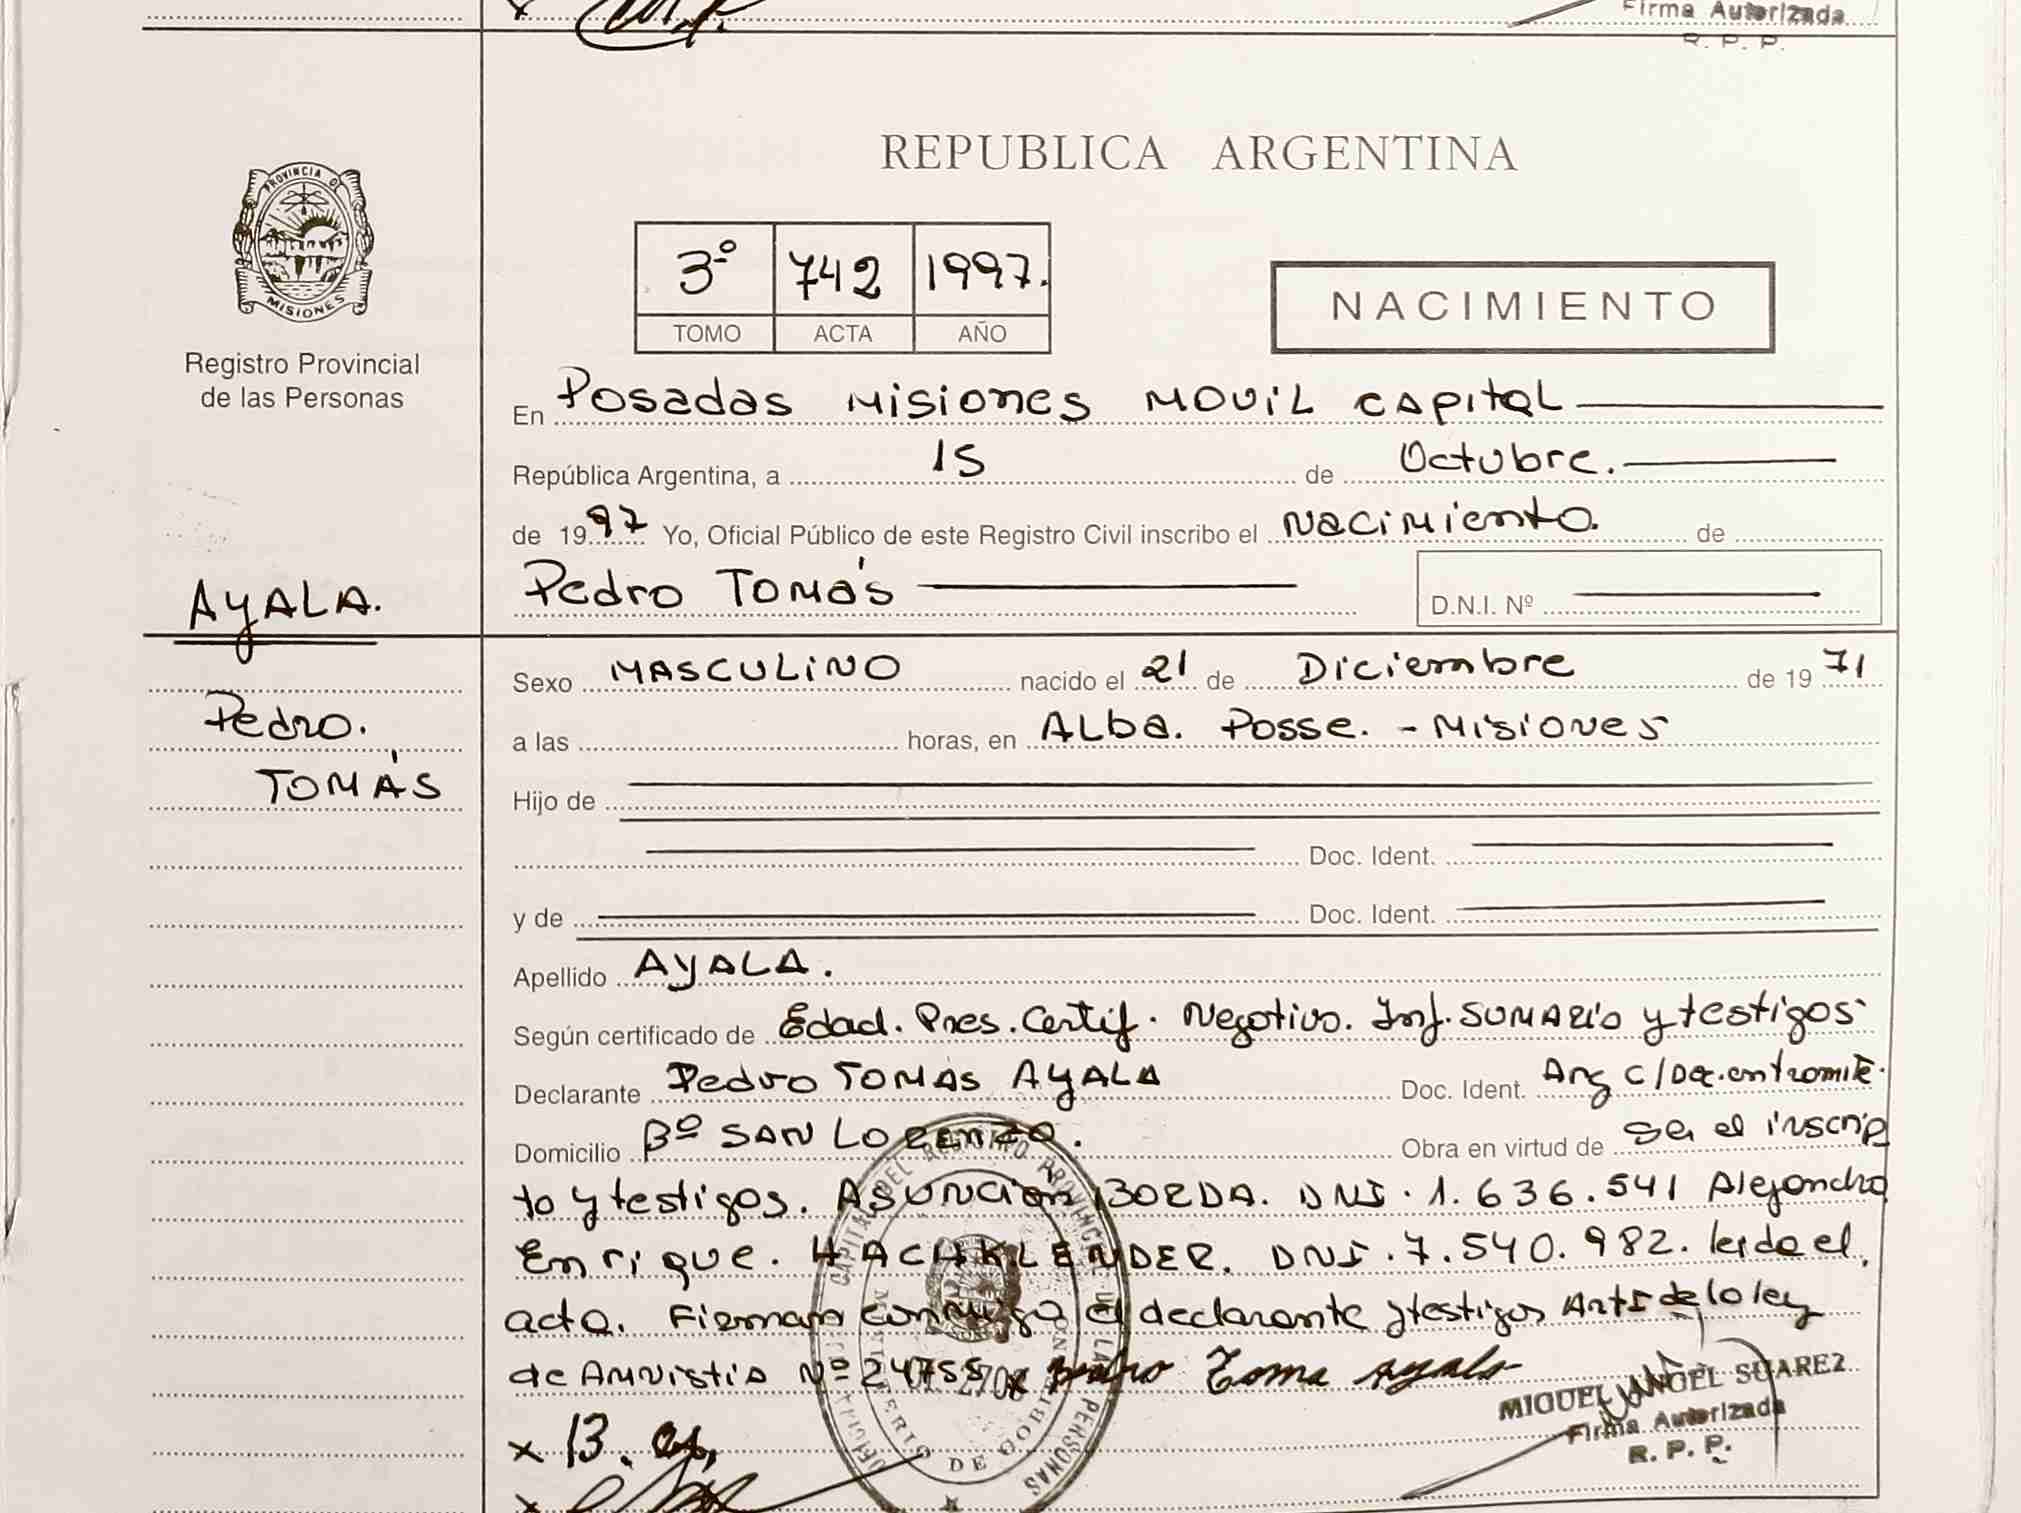 Firma Autorizada
R. P. P.
PROVINCIA DE
MISIONES
Registro Provincial
de las Personas
REPUBLICA ARGENTINA
3º 742 1997.
TOMO ACTA AÑO
NACIMIENTO
En Posadas Misiones Movil Capital
República Argentina, a 15 de Octubre.
de 1997 Yo, Oficial Público de este Registro Civil inscribo el Nacimiento. de
Pedro Tomás D.N.I. Nº
AYALA.
Pedro.
TOMÁS
Sexo MASCULINO nacido el 21 de Diciembre de 1971
a las horas, en Alba. Posse. - Misiones
Hijo de
Doc. Ident.
y de Doc. Ident.
Apellido AYALA.
Según certificado de Edad. Pres. Certif. Negativo. Inf. SUMARIO y testigos
Declarante Pedro TOMAS AYALA Doc. Ident. Arg C/Doc. en tramite.
Domicilio Bº SAN LORENZO. Obra en virtud de ser el inscrip
to y testigos. Asuncion BORDA. DNI. 1.636.541 Alejandro
Enrique. HACHKLENDER. DNI. 7.540.982. leida el
acta. Firman conmigo el declarante y testigos Art 5 de la ley
de Amnistia Nº 24755 Pedro Toma Ayala
MIGUEL ANGEL SUAREZ
Firma Autorizada
R. P. P.
x 13.
x
CAPITAL DEL REGISTRO PROVINCIAL DE LAS PERSONAS
MINISTERIO DE GOBIERNO